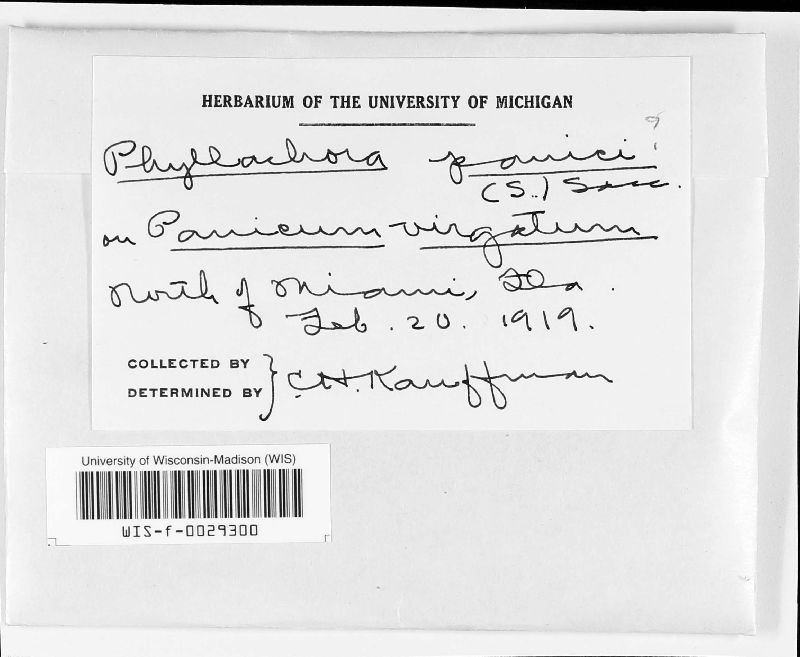 HERBARIUM OF THE UNIVERSITY OF MICHIGAN
Phyllachora panici ?
(S.) Sacc.
on Panicum virgatum
North of Miami, Fla.
Feb. 20. 1919.
COLLECTED BY
DETERMINED BY } C.H. Kauffman
University of Wisconsin-Madison (WIS)
WIS-f-0029300